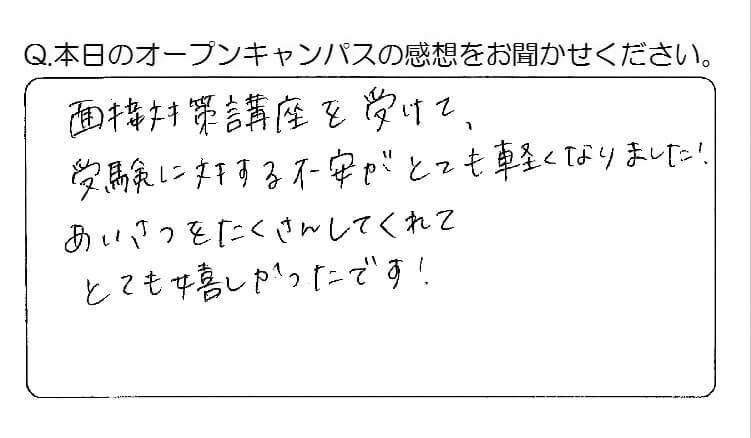 Q.本日のオープンキャンパスの感想をお聞かせください。
面接対策講座を受けて、
受験に対する不安がとても軽くなりました!
あいさつをたくさんしてくれて
とても嬉しかったです!